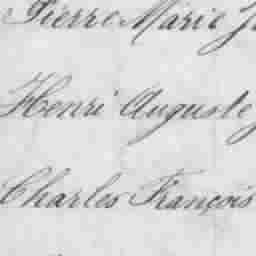 Pierre Marie
Henri Auguste
Charles François